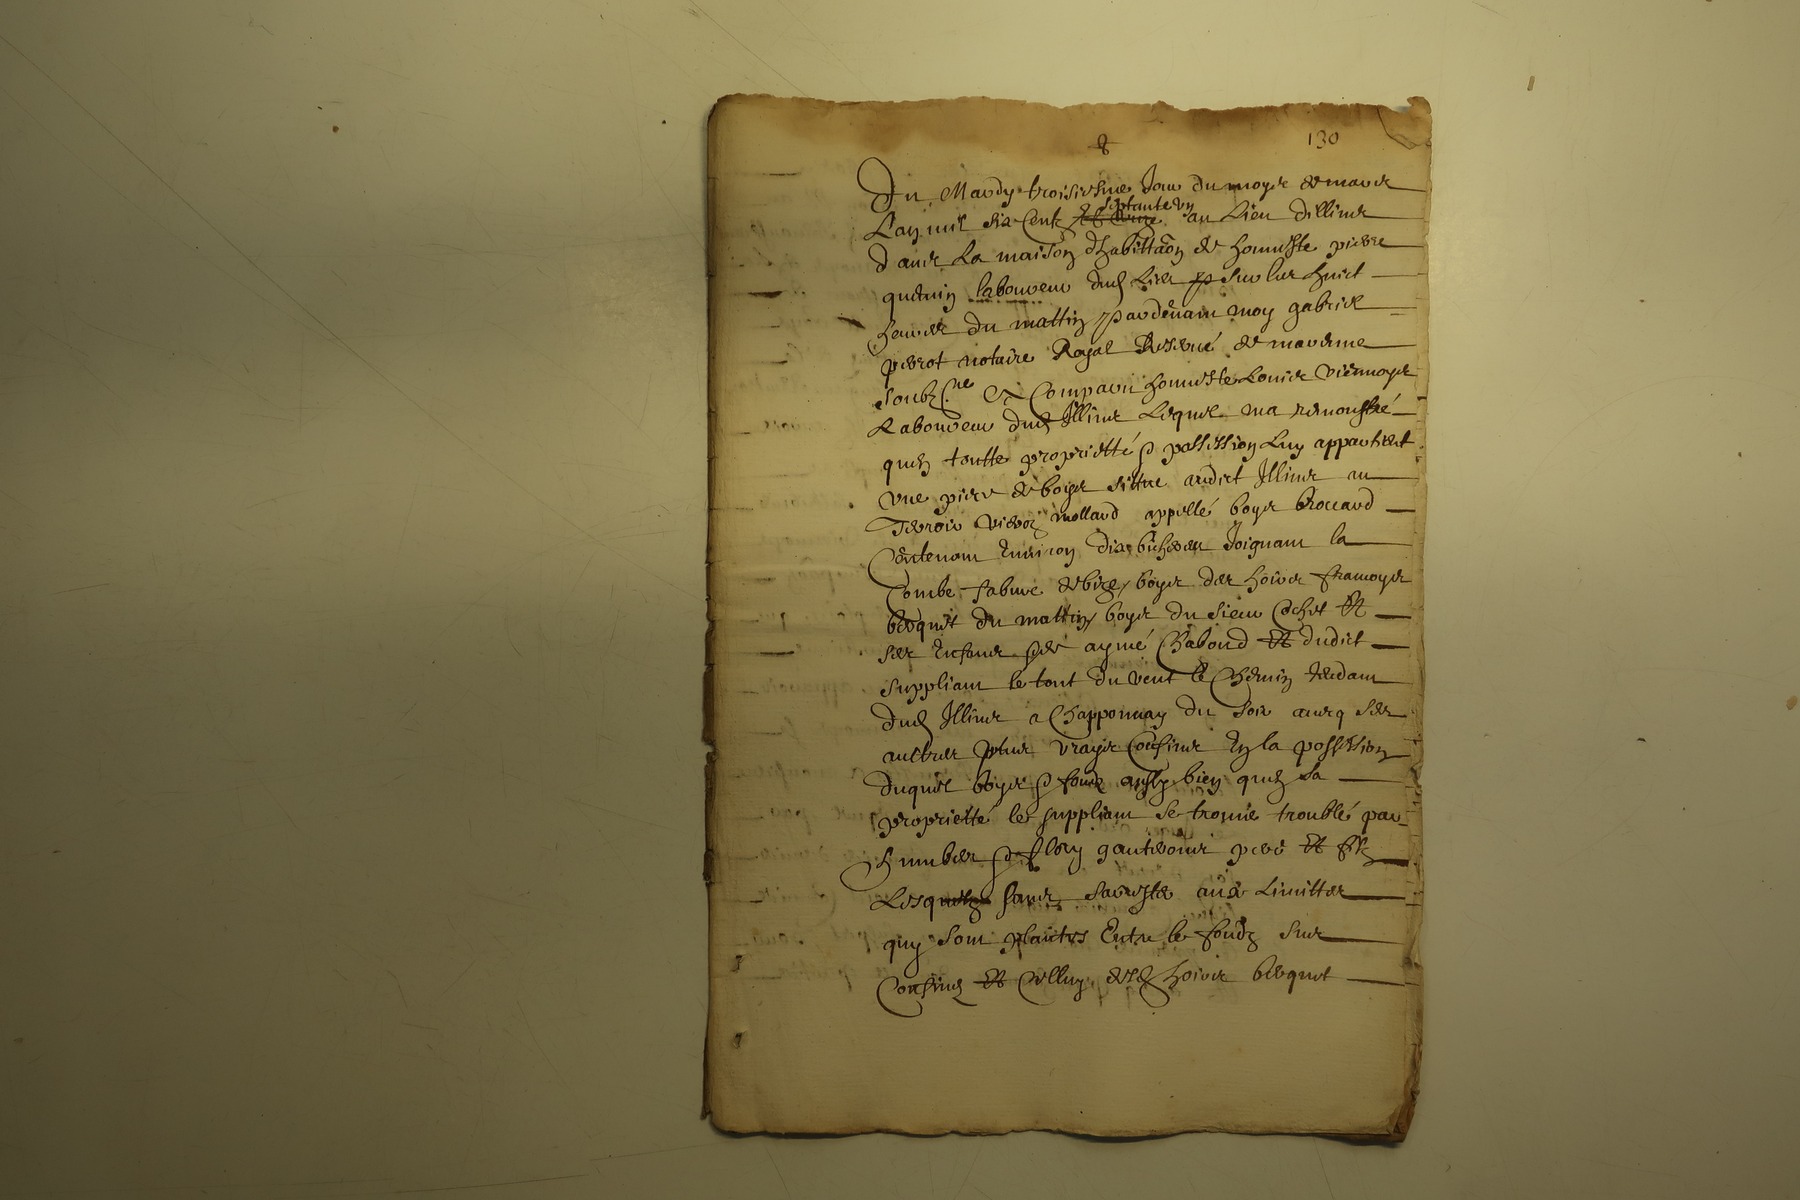 130
Du Mardy troisiesme Jour du moys de mars
L'an mil six Cent septante un au Lieu dillins
dans La maison dhabittaon de honneste pierre
laboureur dud Lieu sur les huict
heures du mattin pardevant moy gabriel
pierrot notaire Royal Reservé de marennes
soubz.ne Et Comparu honneste Louis viennoys
Laboureur dud Illins Lequel ma remonstré
quen toutte proprietté & possession Luy appartient
une piece de boys sittue audict Illins au
Terroir vieux mollard appellé boys broccard
Contenant Environ dix bicherees Joignant la
Combe fabvre de bize, boys des hoirs francoys
becquet du mattin, boys du sieur Cochet Et
ses Enfans, de aymé Chaboud Et dudict
suppliant le tout du vent le Chemin tendant
dud Illins a Chapponnay du soir avecq ses
aultres plus vrays Confins En la possession
duquel boys & fondz aussy bien quen sa
proprietté le suppliant se trouve troublé par
humbert & flory pere Et filz
Lesquelz sans sarrester aux Limittes
quy sont plantes Entre le fondz sus
Confiné Et Celluy desd hoirs becquet